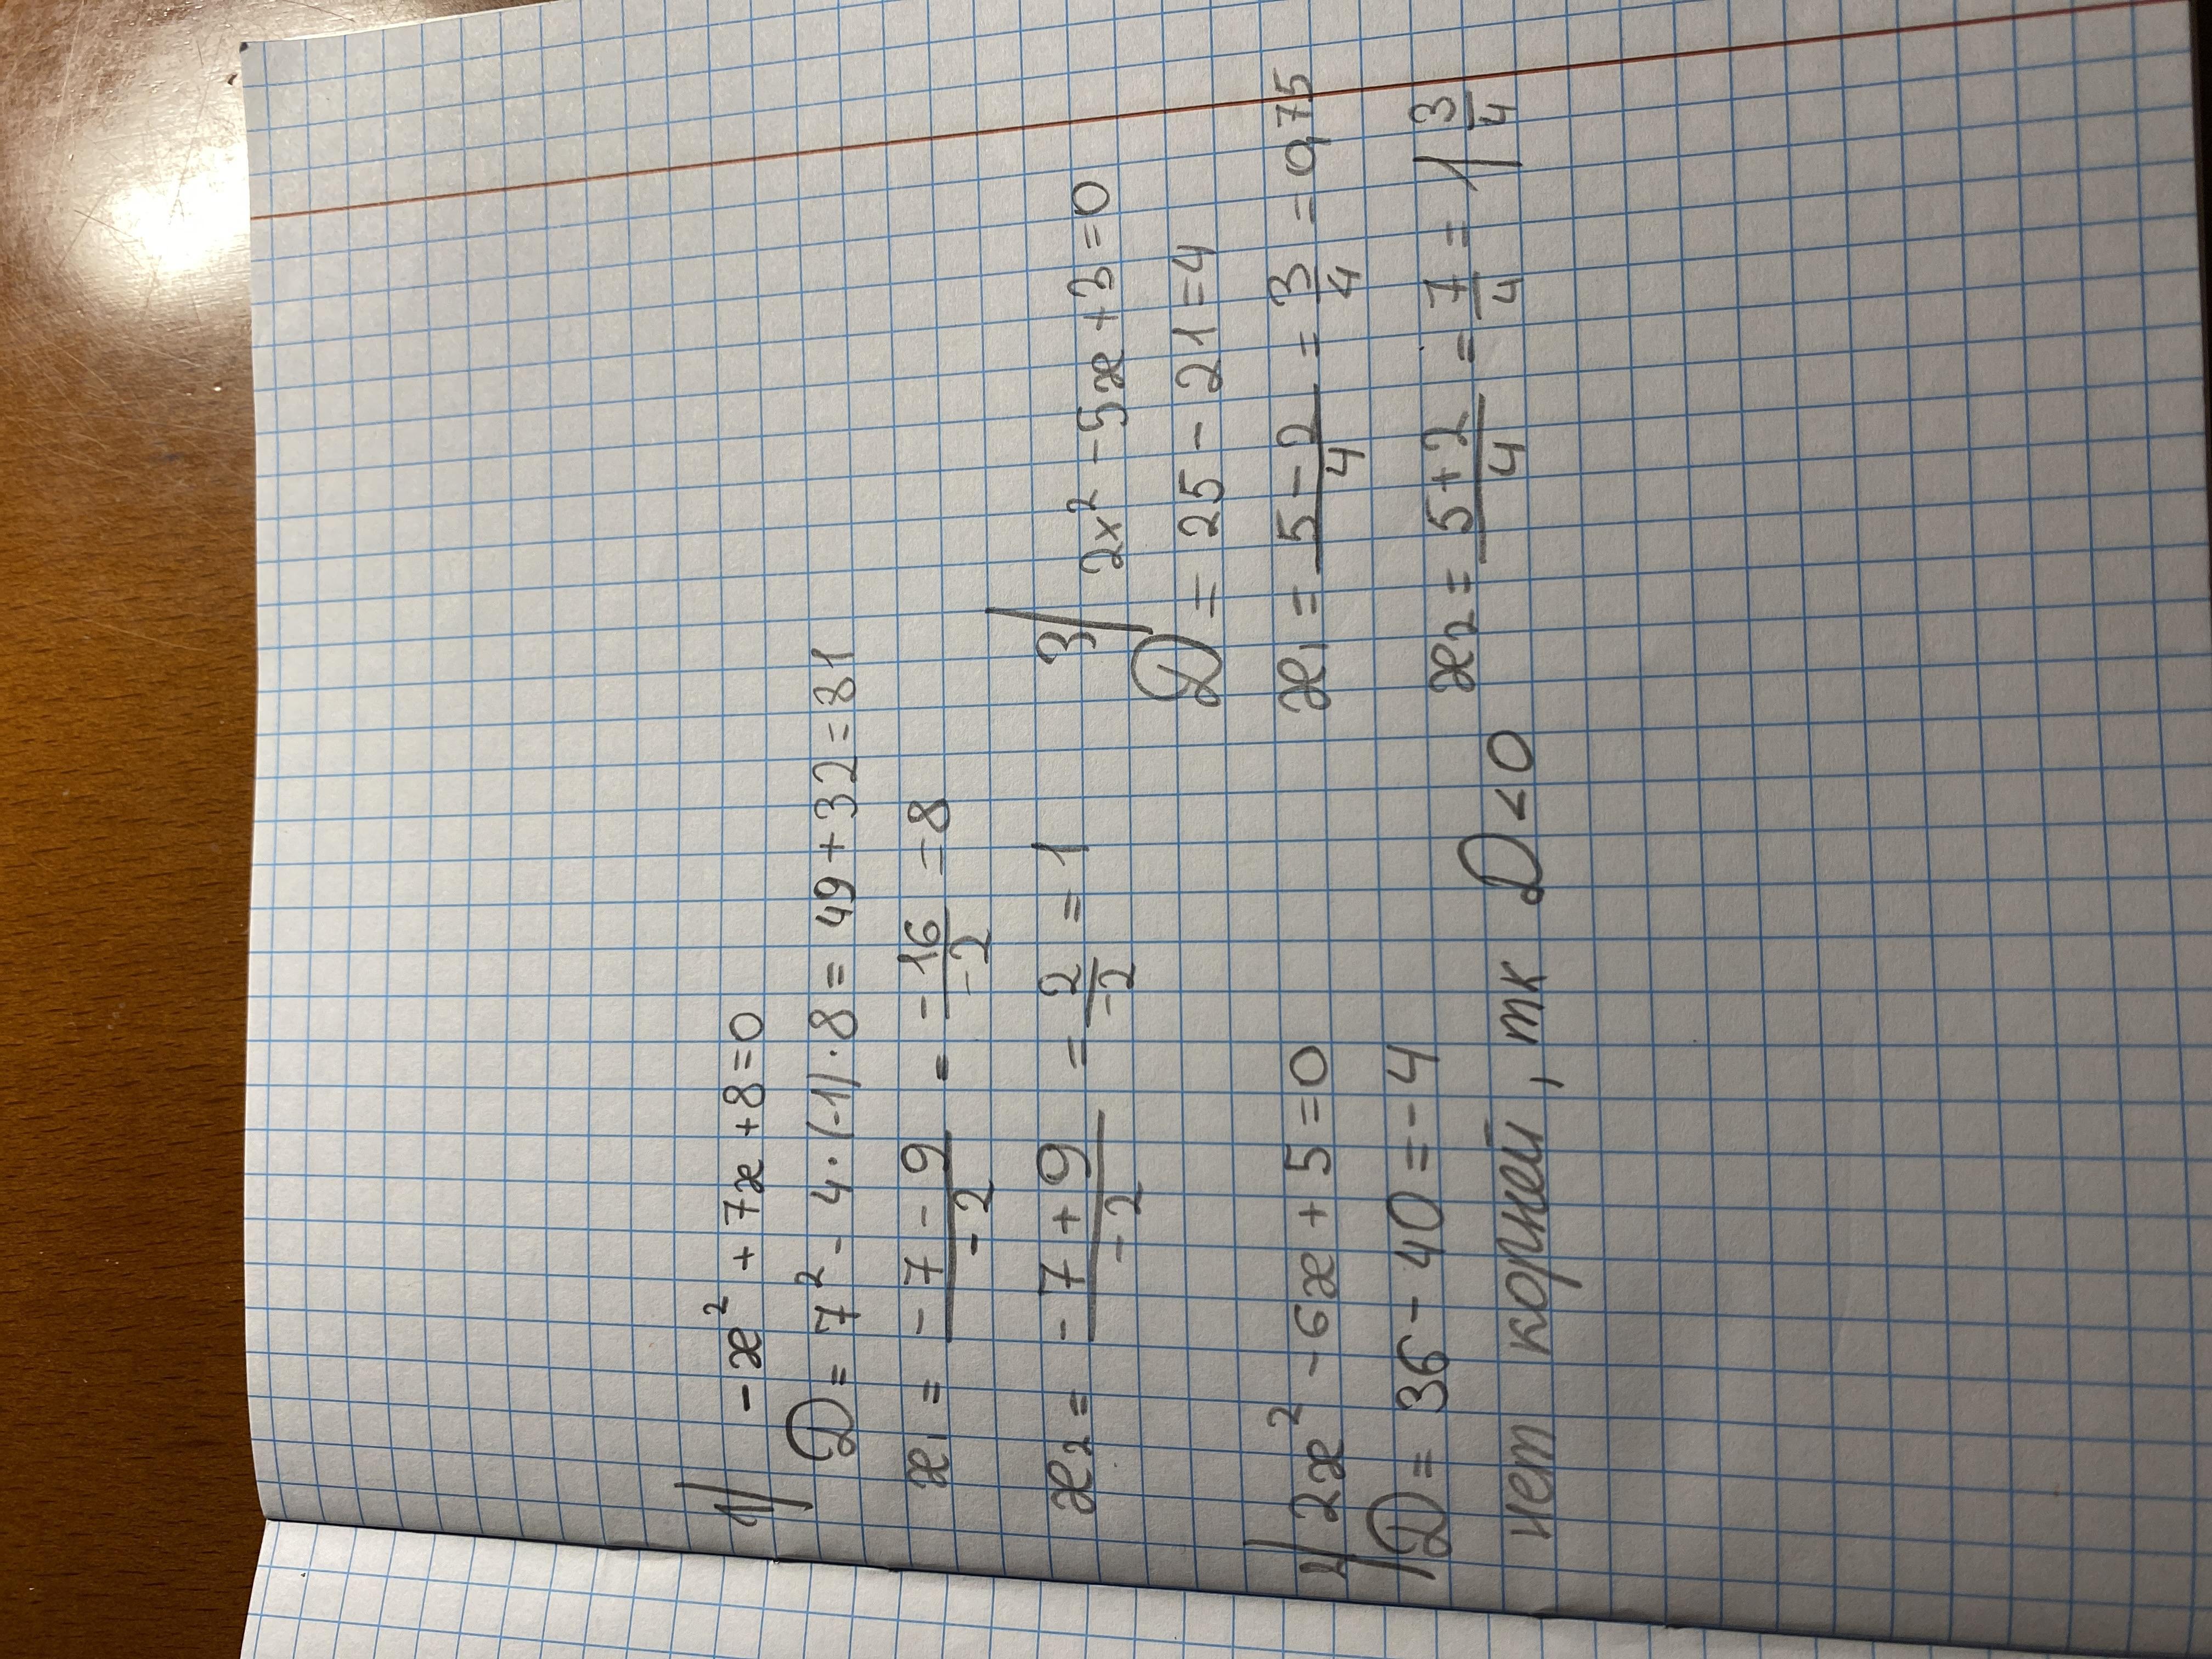 1) -x² + 7x + 8 = 0
D = 7² - 4·(-1)·8 = 49 + 32 = 81
x₁ = (-7 - 9)/(-2) = (-16)/(-2) = 8
x₂ = (-7 + 9)/(-2) = 2/(-2) = 1
2) 2x² - 6x + 5 = 0
D = 36 - 40 = -4
нет корней, тк D < 0
3) 2x² - 5x + 3 = 0
D = 25 - 21 = 4
x₁ = (5 - 2)/4 = 3/4 = 0,75
x₂ = (5 + 2)/4 = 7/4 = 1 3/4